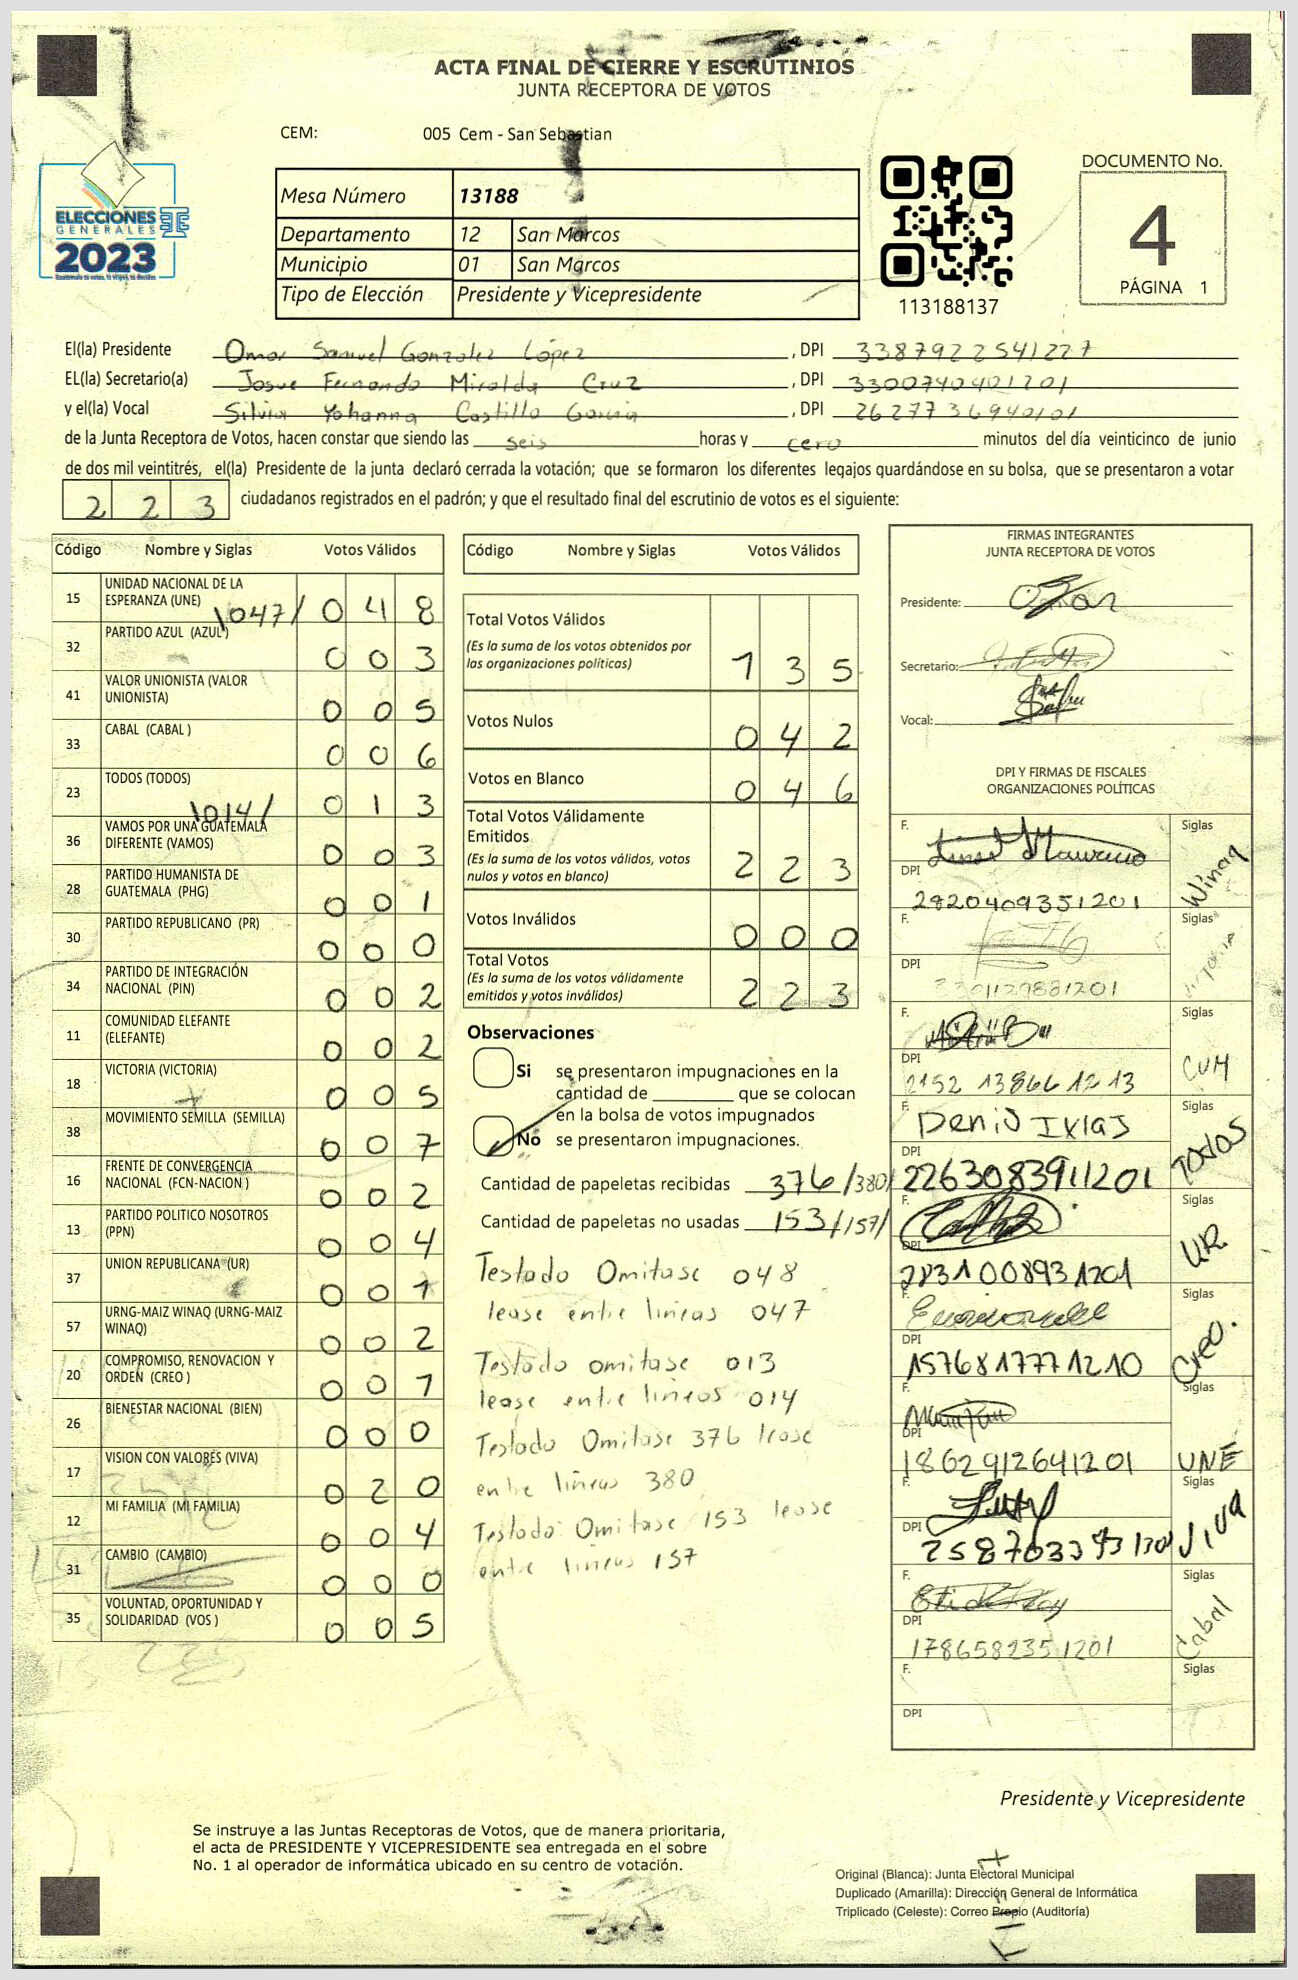 ACTA FINAL DE CIERRE Y ESCRUTINIOS
JUNTA RECEPTORA DE VOTOS
CEM: 005 Cem - San Sebastian
ELECCIONES
GENERALES
2023
Mesa Número 13188
Departamento 12 San Marcos
Municipio 01 San Marcos
Tipo de Elección Presidente y Vicepresidente
113188137
DOCUMENTO No.
4
PÁGINA 1
El(la) Presidente Omar Samuel Gonzalez López, DPI 3387922541227
EL(la) Secretario(a) Josue Fernando Miralda Cruz, DPI 3300740401201
y el(la) Vocal Silvia Yohanna Castillo Garcia, DPI 2627736940101
de la Junta Receptora de Votos, hacen constar que siendo las seis horas y cero minutos del día veinticinco de junio
de dos mil veintitrés, el(la) Presidente de la junta declaró cerrada la votación; que se formaron los diferentes legajos quardándose en su bolsa, que se presentaron a votar
223 ciudadanos registrados en el padrón; y que el resultado final del escrutinio de votos es el siguiente:
Código Nombre y Siglas Votos Válidos
15 UNIDAD NACIONAL DE LA ESPERANZA (UNE) /047/ 048
32 PARTIDO AZUL (AZUL) 003
41 VALOR UNIONISTA (VALOR UNIONISTA) 005
33 CABAL (CABAL ) 006
23 TODOS (TODOS) /014/ 013
36 VAMOS POR UNA GUATEMALA DIFERENTE (VAMOS) 003
28 PARTIDO HUMANISTA DE GUATEMALA (PHG) 001
30 PARTIDO REPUBLICANO (PR) 000
34 PARTIDO DE INTEGRACIÓN NACIONAL (PIN) 002
11 COMUNIDAD ELEFANTE (ELEFANTE) 002
18 VICTORIA (VICTORIA) 005
38 MOVIMIENTO SEMILLA (SEMILLA) 007
16 FRENTE DE CONVERGENCIA NACIONAL (FCN-NACION ) 002
13 PARTIDO POLITICO NOSOTROS (PPN) 004
37 UNION REPUBLICANA (UR) 001
57 URNG-MAIZ WINAQ (URNG-MAIZ WINAQ) 002
20 COMPROMISO, RENOVACION Y ORDEN (CREO ) 001
26 BIENESTAR NACIONAL (BIEN) 000
17 VISION CON VALORES (VIVA) 020
12 MI FAMILIA (MI FAMILIA) 004
31 CAMBIO (CAMBIO) 000
35 VOLUNTAD, OPORTUNIDAD Y SOLIDARIDAD (VOS ) 005
Código Nombre y Siglas Votos Válidos
Total Votos Válidos 135
(Es la suma de los votos obtenidos por
las organizaciones políticas)
Votos Nulos 042
Votos en Blanco 046
Total Votos Válidamente
Emitidos 223
(Es la suma de los votos válidos, votos
nulos y votos en blanco)
Votos Inválidos 000
Total Votos 223
(Es la suma de los votos válidamente
emitidos y votos inválidos)
Observaciones
Si se presentaron impugnaciones en la
cantidad de ________ que se colocan
en la bolsa de votos impugnados
No se presentaron impugnaciones.
Cantidad de papeletas recibidas 376 /380/
Cantidad de papeletas no usadas 153 /157/
Testado Omitase 048
lease entre lineas 047
Testado omitase 013
lease entre lineas 014
Testado Omitase 376 lease
entre lineas 380
Testado Omitase 153 lease
entre lineas 157
FIRMAS INTEGRANTES
JUNTA RECEPTORA DE VOTOS
Presidente:
Secretario:
Vocal:
DPI Y FIRMAS DE FISCALES
ORGANIZACIONES POLÍTICAS
F. Siglas Winaq
DPI 2820409351201
F. Siglas
DPI
F. Siglas CVM
DPI
F. Denis Ixlaj Siglas TODOS
DPI 2263083911201
F. Siglas UR
DPI 2831008931201
F. Siglas Creo.
DPI 1576817771210
F. Siglas UNE
DPI 1862912641201
F. Siglas Viva
DPI
F. Siglas Cabal
DPI 1786582351201
F. Siglas
DPI
Presidente y Vicepresidente
Se instruye a las Juntas Receptoras de Votos, que de manera prioritaria,
el acta de PRESIDENTE Y VICEPRESIDENTE sea entregada en el sobre
No. 1 al operador de informática ubicado en su centro de votación.
Original (Blanca): Junta Electoral Municipal
Duplicado (Amarilla): Dirección General de Informática
Triplicado (Celeste): Correo Propio (Auditoría)